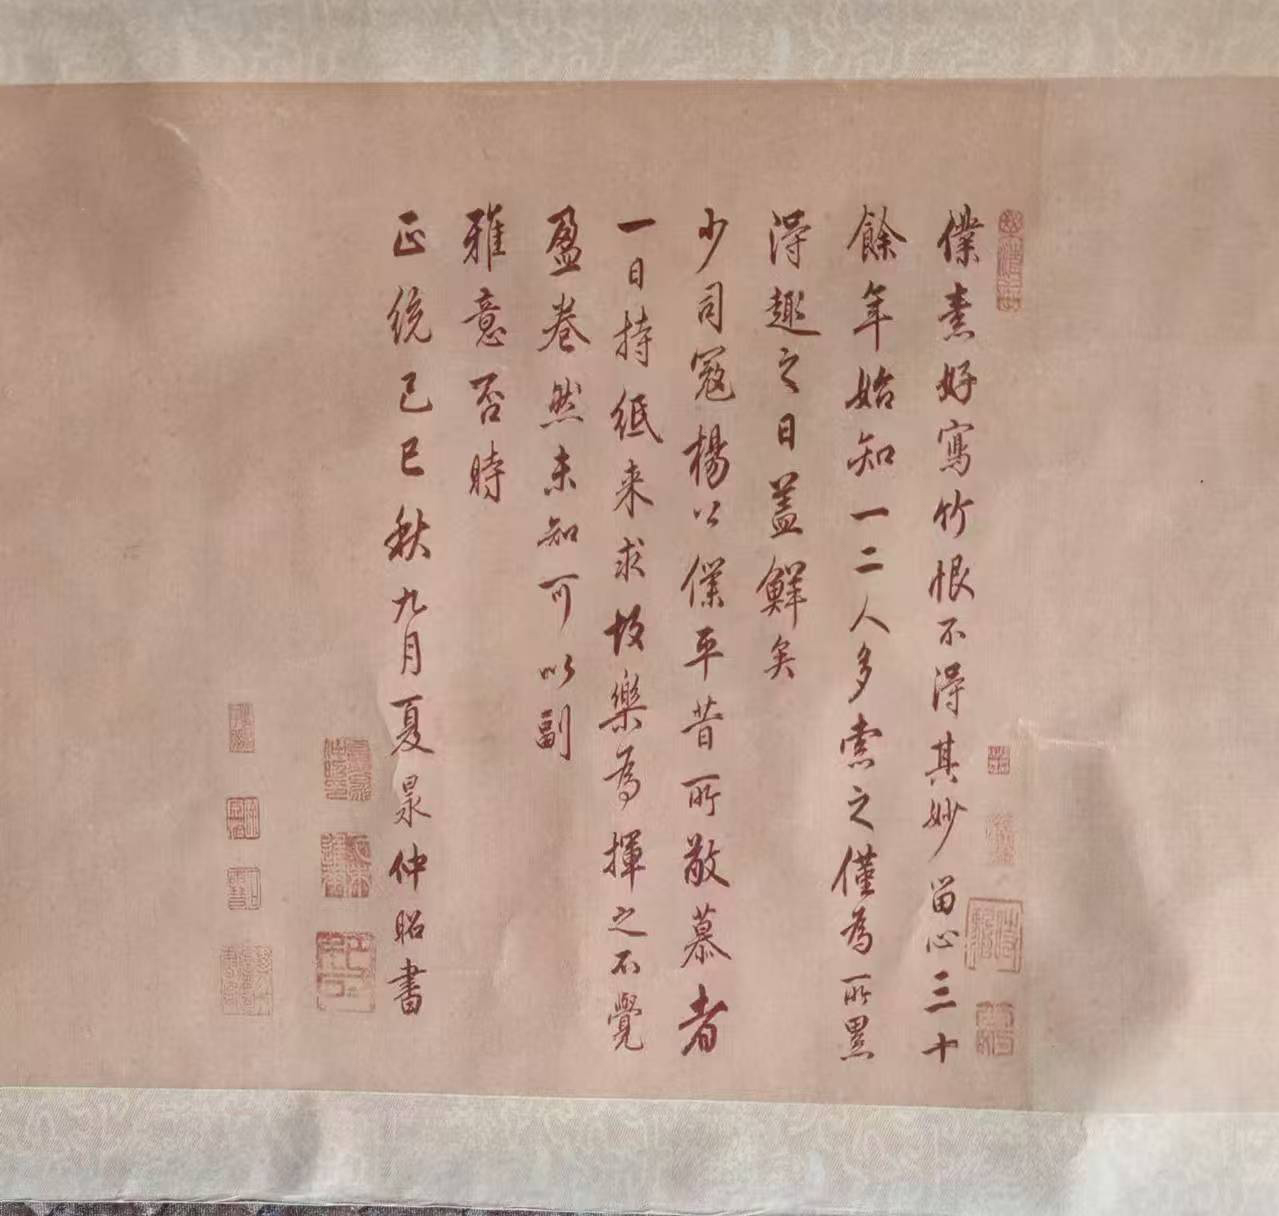 僕素好寫竹恨不得其妙留心三十
餘年始知一二人多索之僅為所累
得趣之日蓋鮮矣
少司寇楊公僕平昔所敬慕者
一日持紙來求故樂為揮之不覺
盈卷然未知可以副
雅意否時
正統己巳秋九月夏昶仲昭書